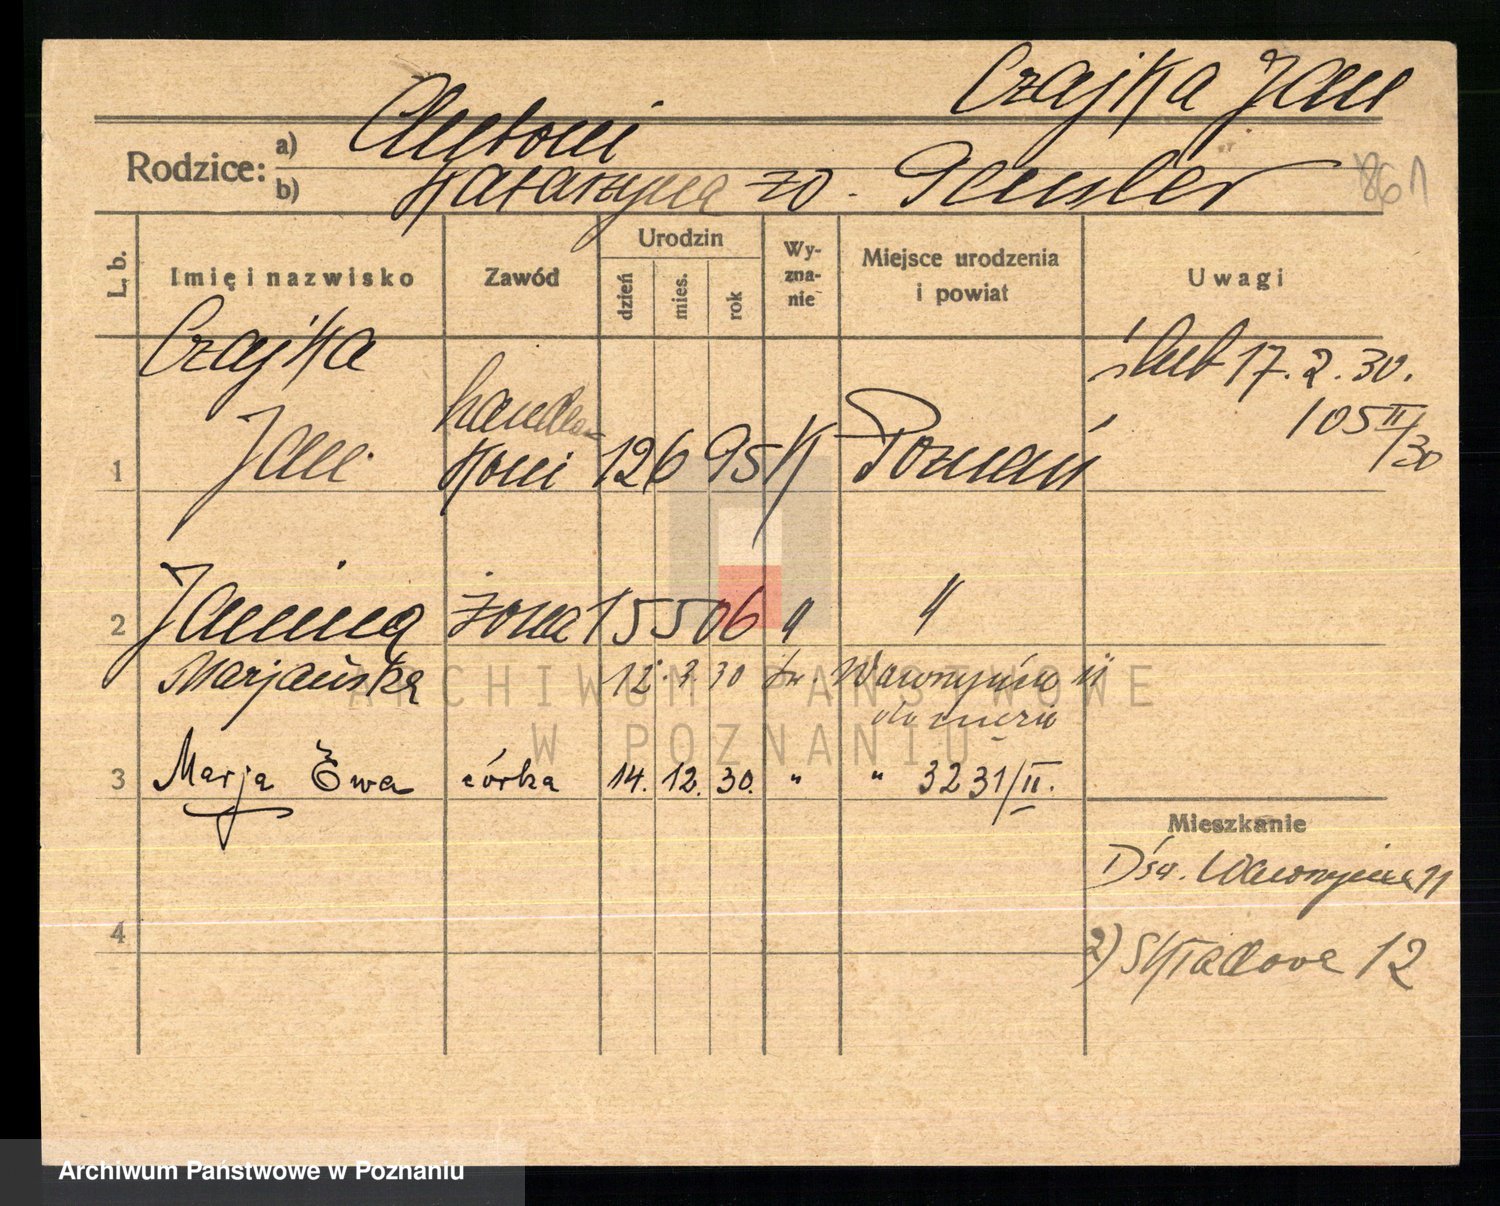 Czajka Jan
Rodzice: a) Antoni
b) Katarzyna zd.
861
L, b.
Imię i nazwisko
Zawód
Urodzin
dzień
mies.
rok
Wy-
zna-
nie
Miejsce urodzenia
i powiat
Uwagi
Czajka
ślub 17. 2. 30.
105 II/30
1 Jan handlarz koni 12 6 95 K Poznań
2 Janina żona 15 5 06 " "
Marjańska 12. 3. 30 św. Wawrzyńca 11
do męża
3 Marja Ewa córka 14. 12. 30. " " 3231/II.
Mieszkanie
1) św. Wawrzyńca 11
4
2) Składowa 12
ARCHIWUM PAŃSTWOWE
W POZNANIU
Archiwum Państwowe w Poznaniu